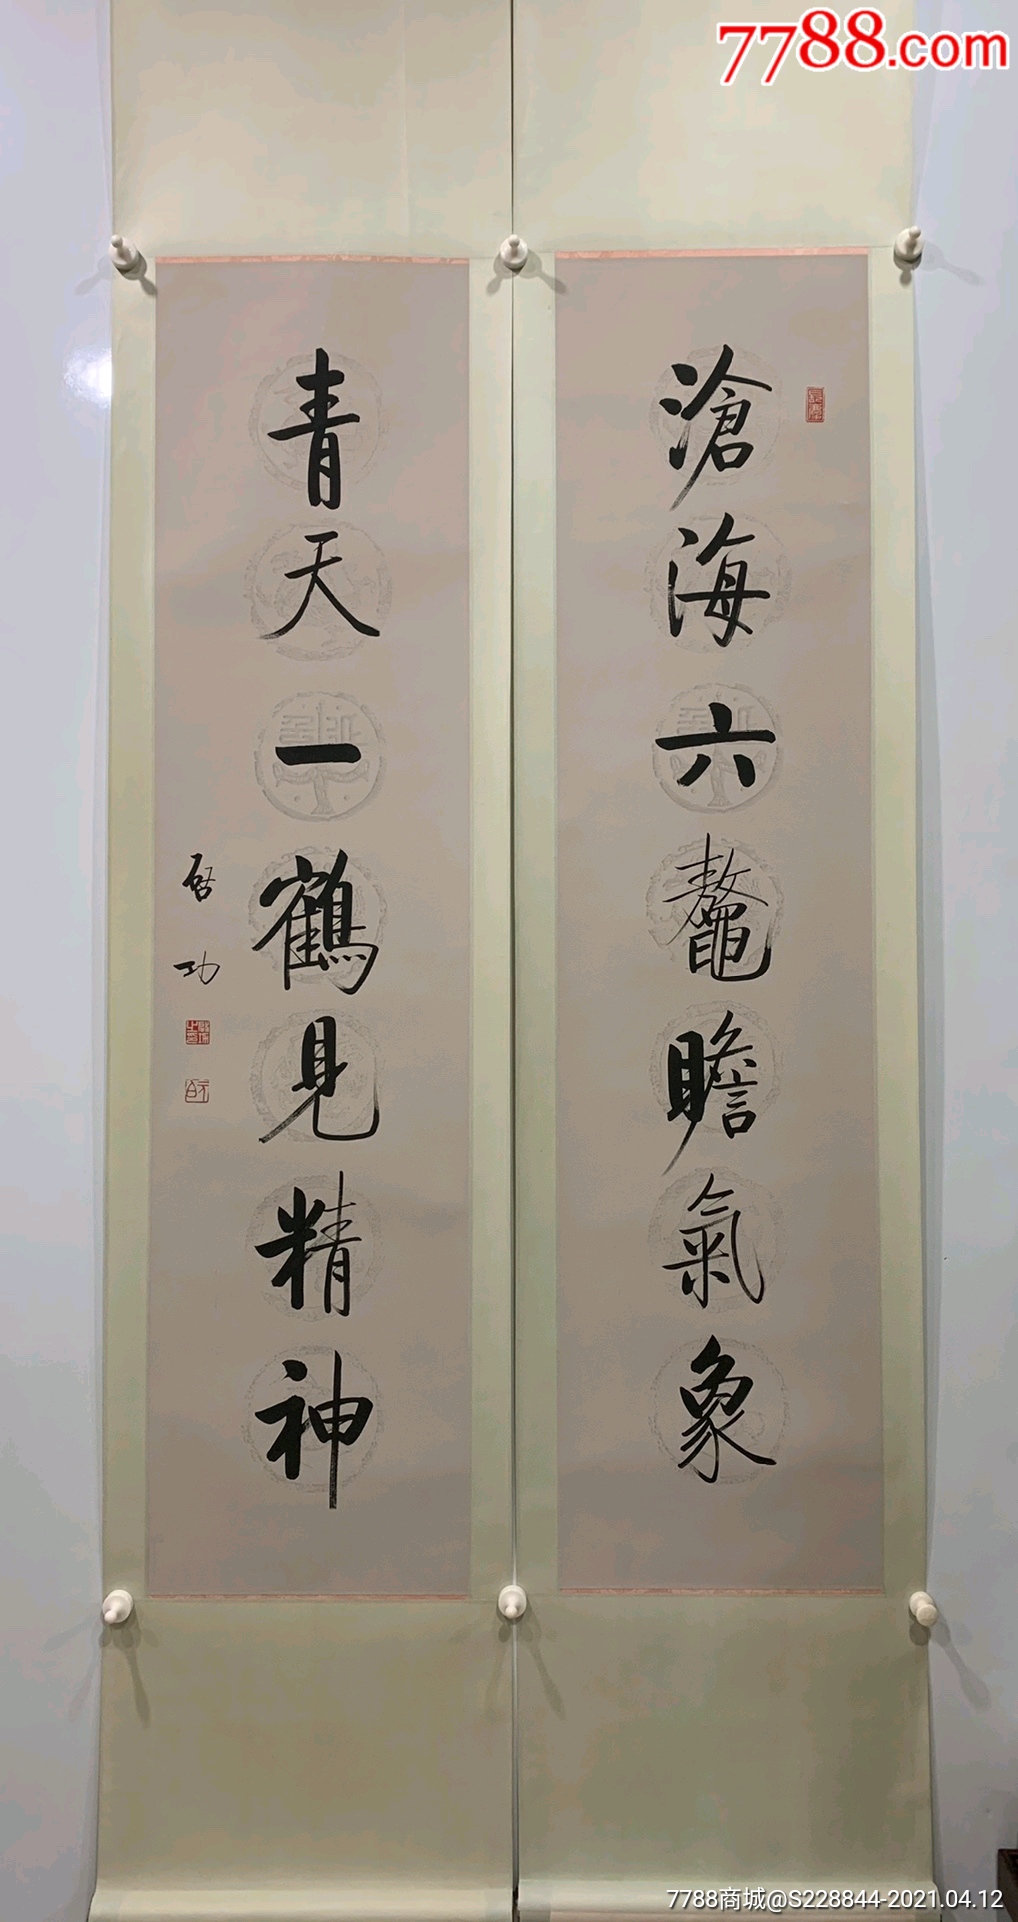 7788.com
滄海六鼇瞻氣象
青天一鶴見精神
啓功
7788商城@S228844-2021.04.12